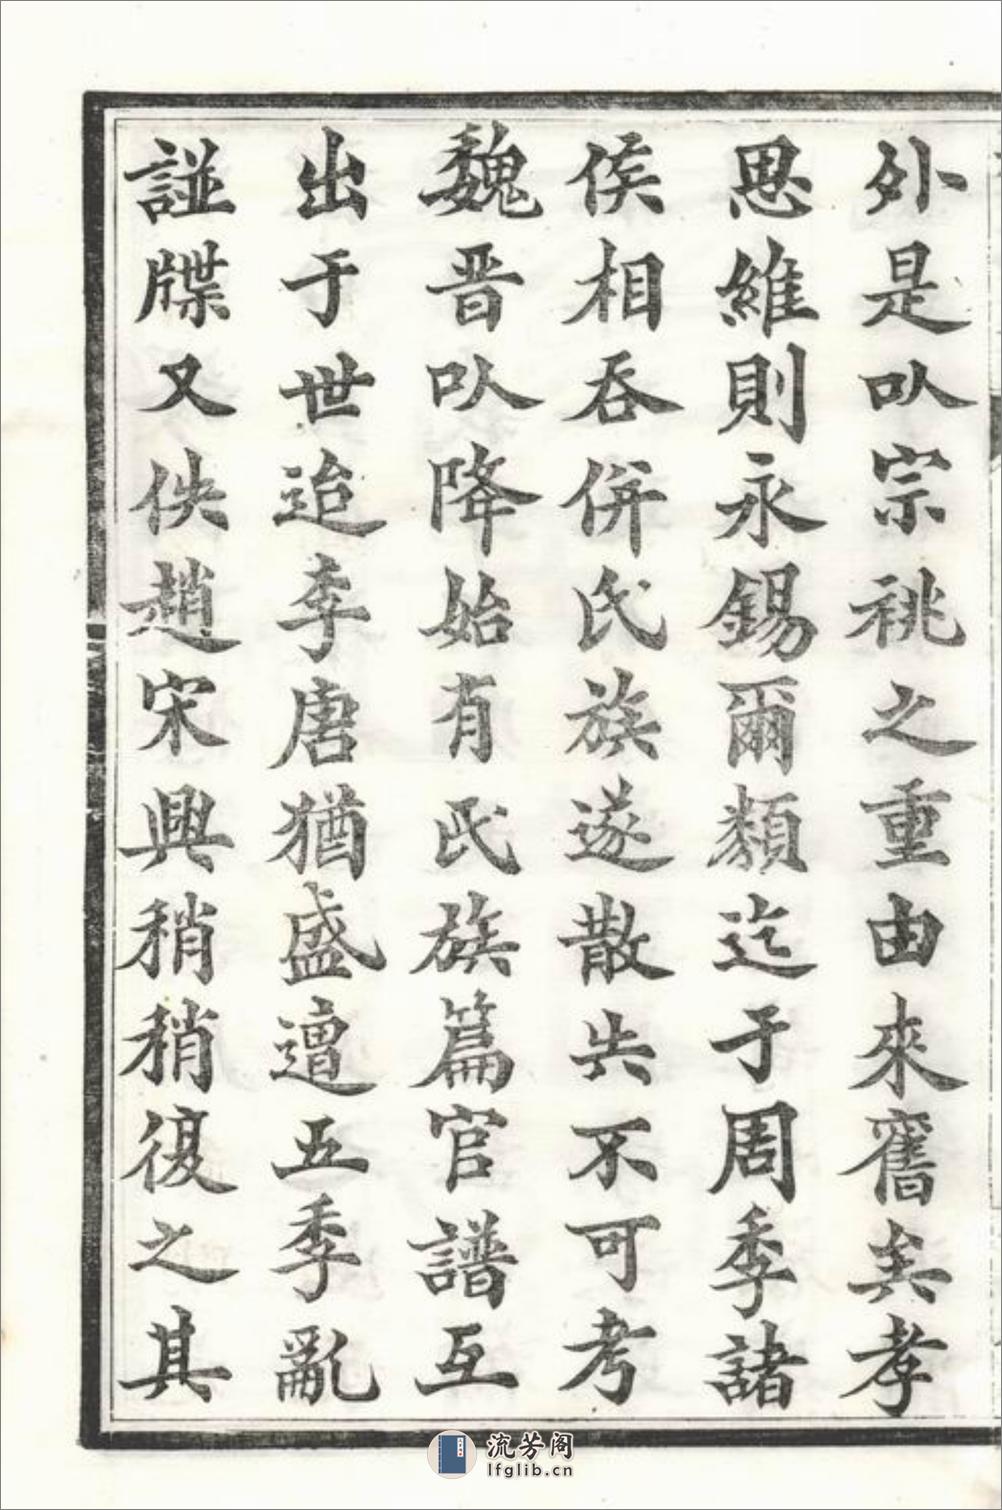 外是㕥宗祧之重由來舊矣孝
思維則永錫爾類迄于周季諸
侯相吞併氏族遂散失不可考
魏晉㕥降始有氏族篇官譜互
出于世迨李唐猶盛遭五季亂
譜牒又佚趙宋興稍稍復之其
流芳阁
lfglib.cn